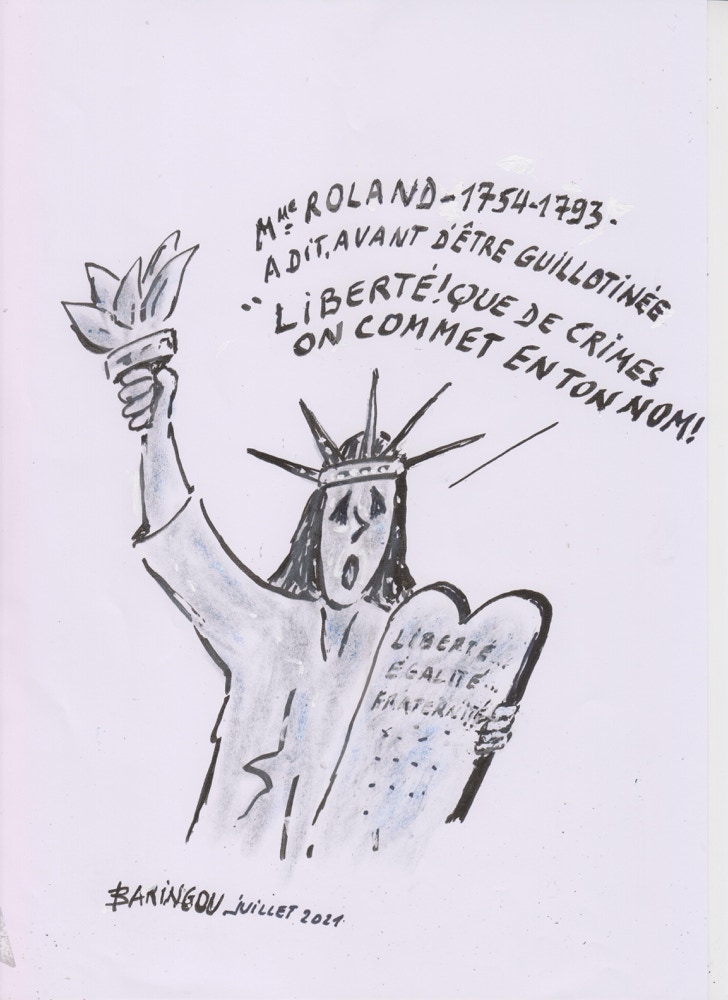 Mme ROLAND-1754-1793.
A DIT, AVANT D'ÊTRE GUILLOTINÉE
"LIBERTÉ! QUE DE CRIMES
ON COMMET EN TON NOM!
LIBERTÉ...
ÉGALITÉ...
FRATERNITÉ
BARINGOU JUILLET 2021